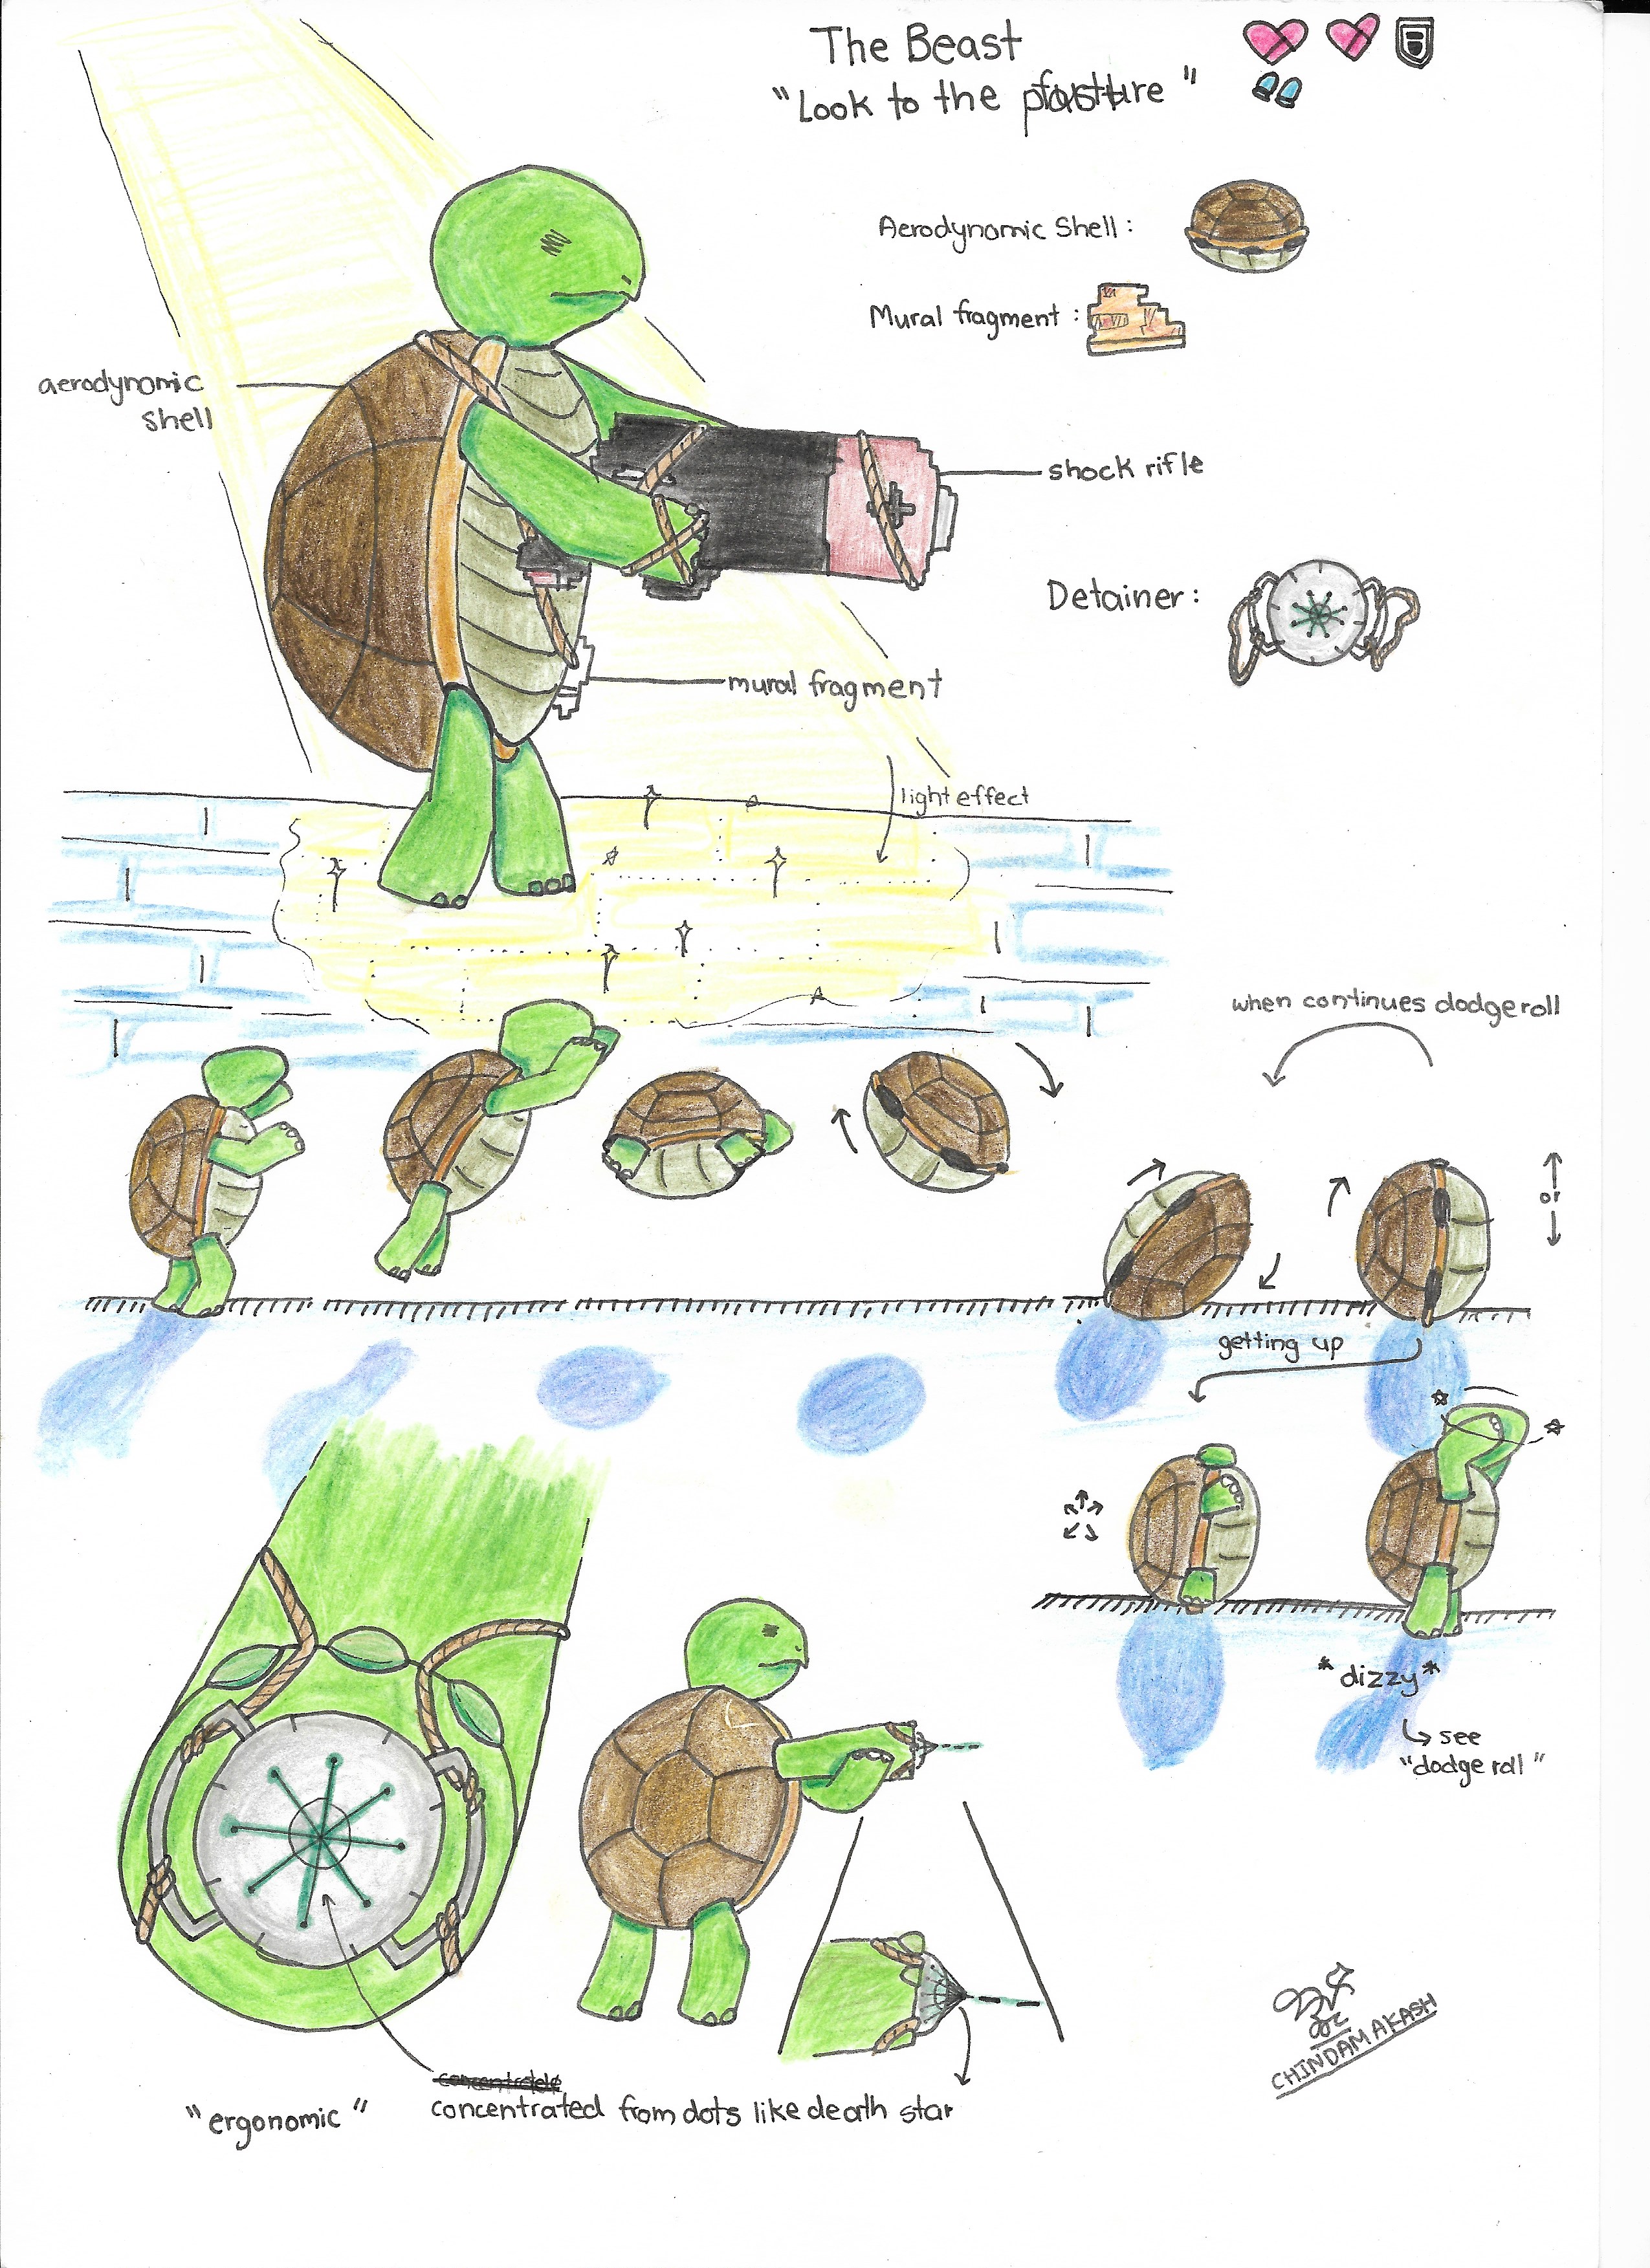 The Beast
"Look to the "
Aerodynamic Shell :
Mural fragment :
aerodynamic
shell
shock rifle
Detainer :
mural fragment
light effect
when continues dodgeroll
or
getting up
*dizzy*
see
"dodge roll"
"ergonomic"
concentrated from dots like death star
CHINDAM AKASH